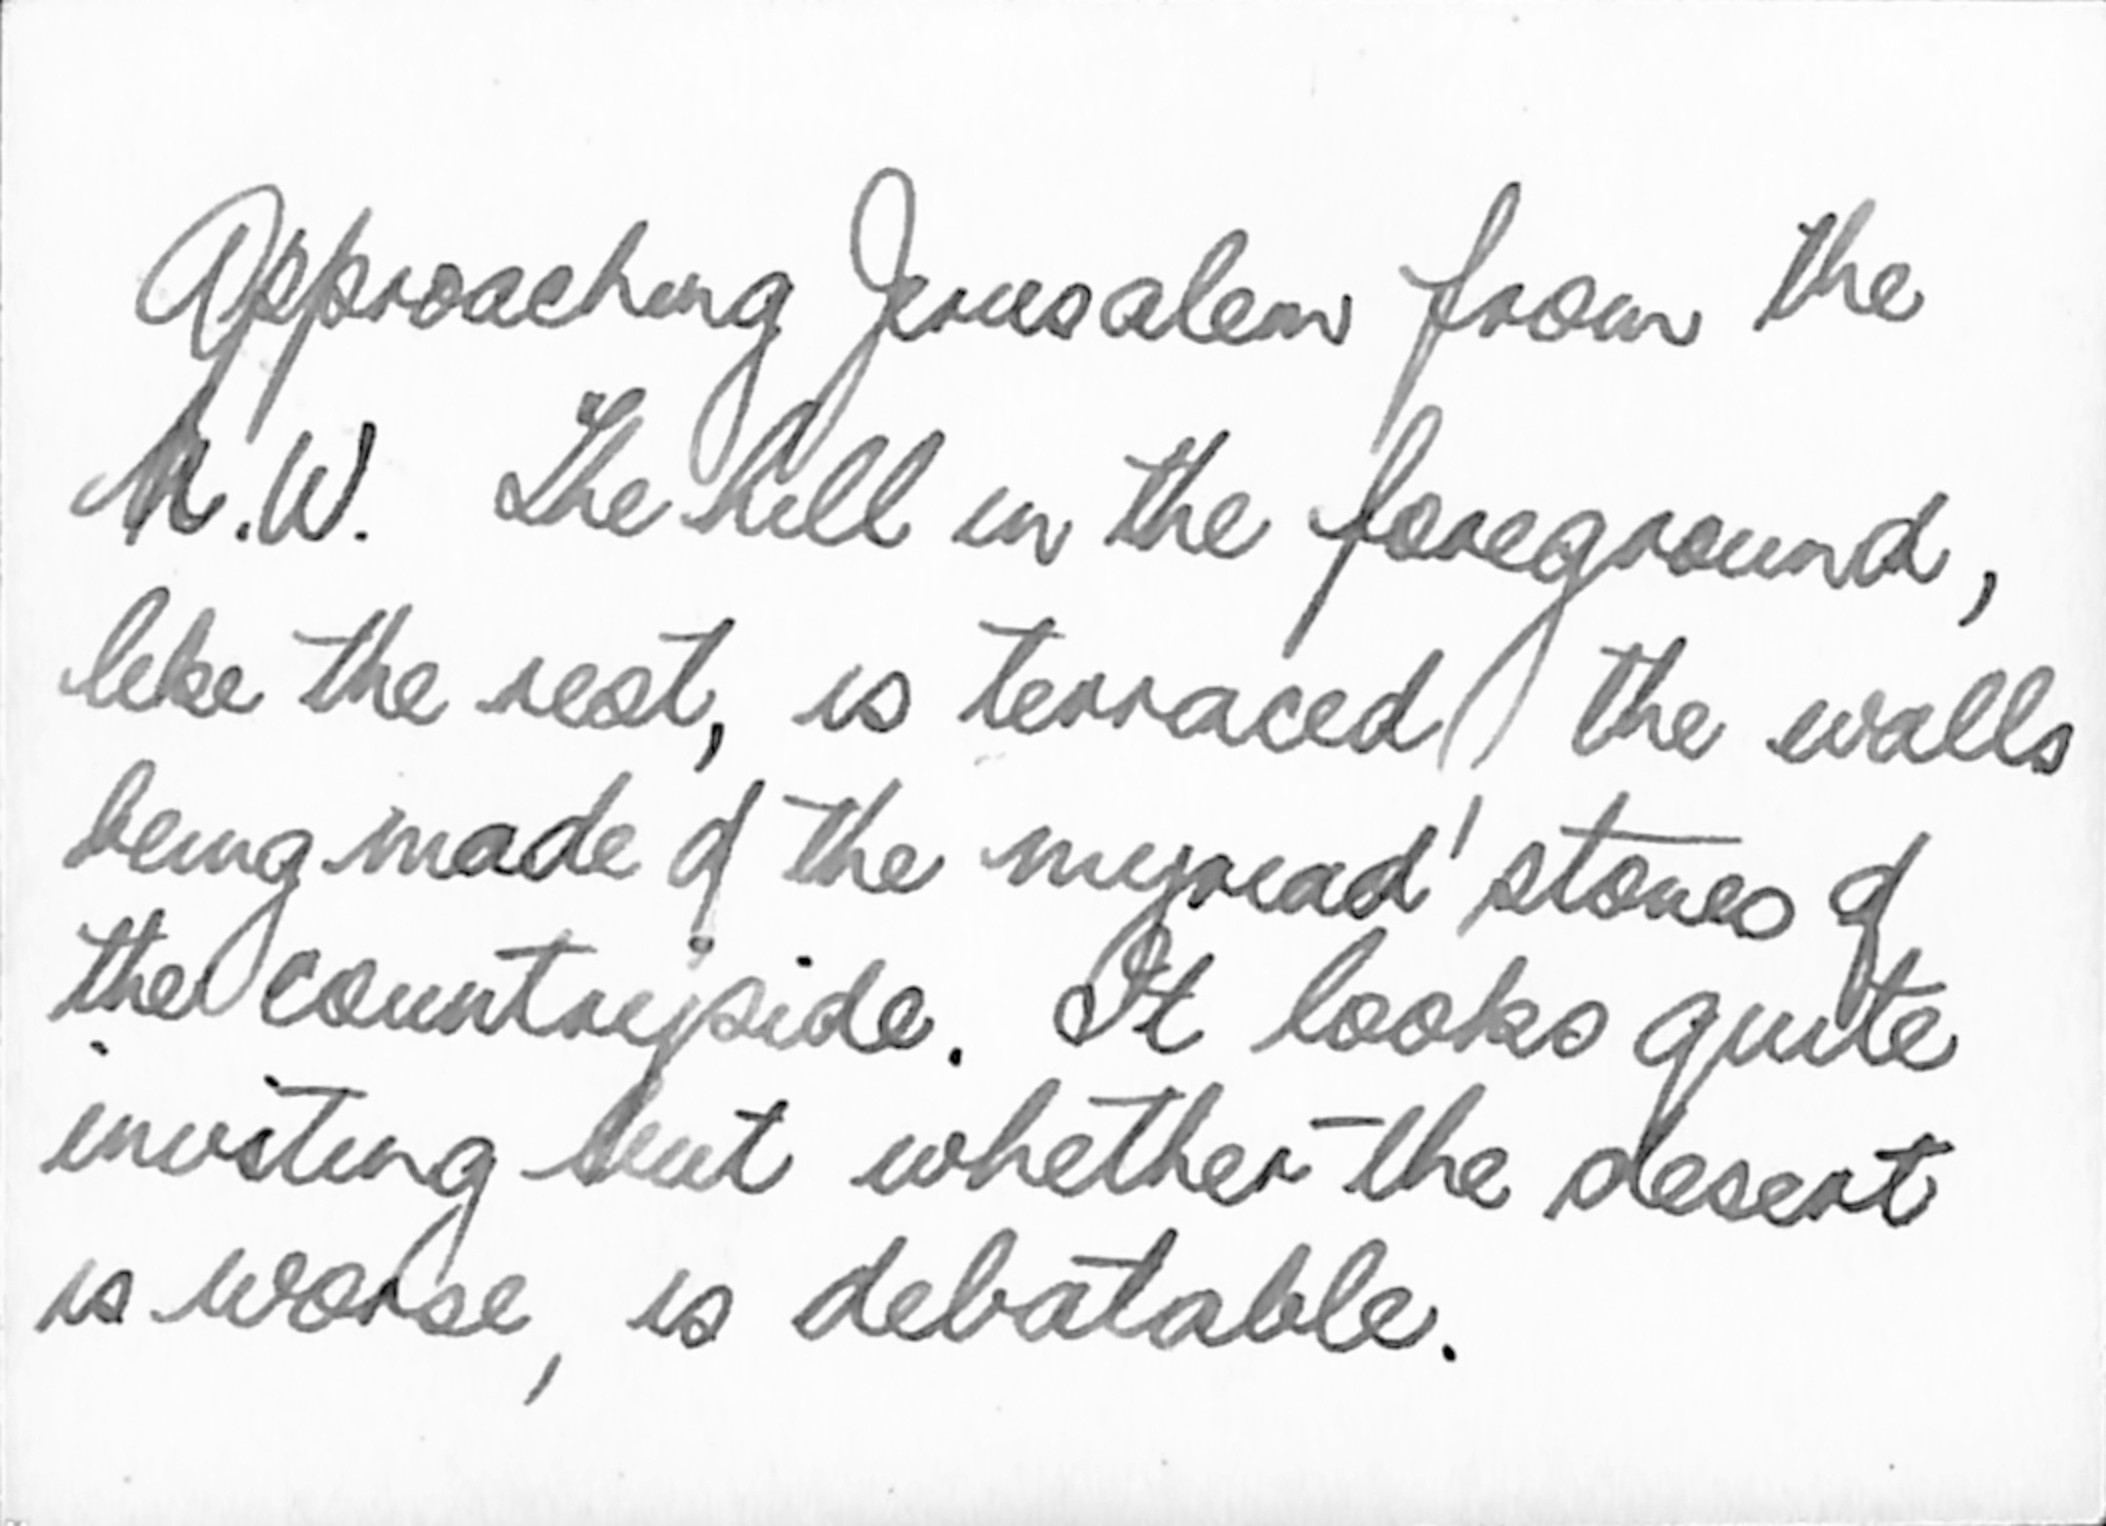 Approaching Jerusalem from the
N.W. The hill in the foreground,
like the rest, is terraced, the walls
being made of the myriad stones of
the countryside. It looks quite
inviting but whether the desert
is worse, is debatable.